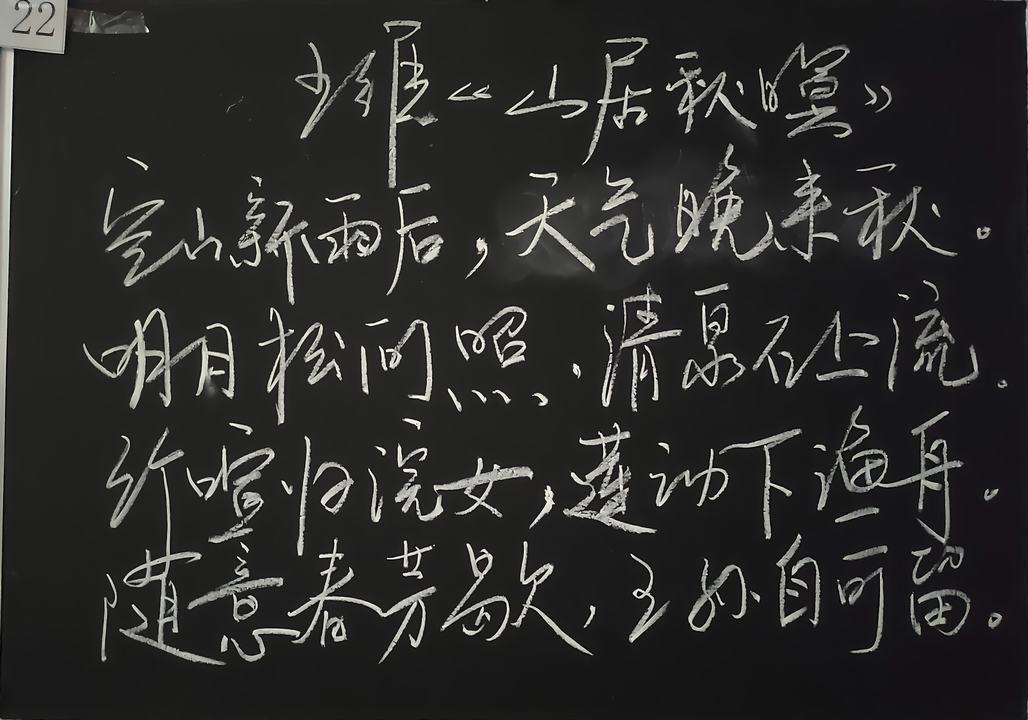 22
王维《山居秋暝》
空山新雨后，天气晚来秋。
明月松间照，清泉石上流。
竹喧归浣女，莲动下渔舟。
随意春芳歇，王孙自可留。